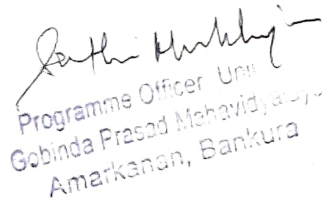 Programme Officer Unit
Gobinda Prasad Mahavidyalaya
Amarkanan, Bankura